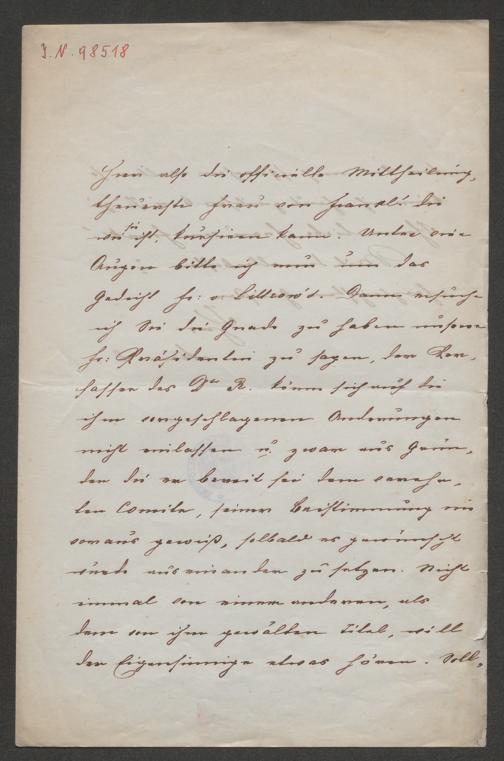 I.N. 98518
Hier also die officielle Mittheilung,
theuerste Frau von Frankl! Die
wie sie ist, kursiren kann. Unter vier
Augen bitte ich nun um das
Gedicht Fr: v. Littrow's. Dann ersuche
ich Sie die Gnade zu haben unserer
Fr: Präsidentin zu sagen, der Ver-
fasser des Dr R. könne sich auf die
ihm vorgeschlagenen Änderungen
nicht einlassen u. zwar aus Grün,
den die er bereit sei dem verehr,
ten Comite, seiner Beistimmung im
voraus gewiß, sobald es gewünscht
würde auseinander zu setzen. Nicht
einmal von einem anderen, als
dem von ihm gewälten Titel, will
der Eigensinnige etwas hören. Soll,